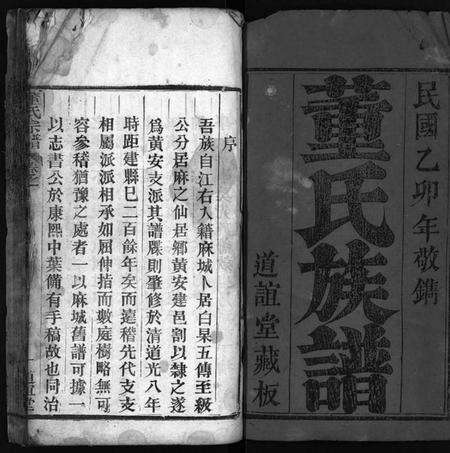 民國乙卯年敬鐫
董氏族譜
道誼堂藏板
序
吾族自江右入籍麻城卜居白杲五傳至級
公分居麻之仙居鄉黃安建邑割以隸之遂
為黃安支派其譜牒則肇修於清道光八年
時距建縣巳二百餘年矣而遠稽先代支支
相屬派派相承如屈伸指而數庭樹略無可
容參稽猶豫之處者一以麻城舊譜可據一
以志書公於康熙中葉備有手稿故也同治
氏宗譜
堂